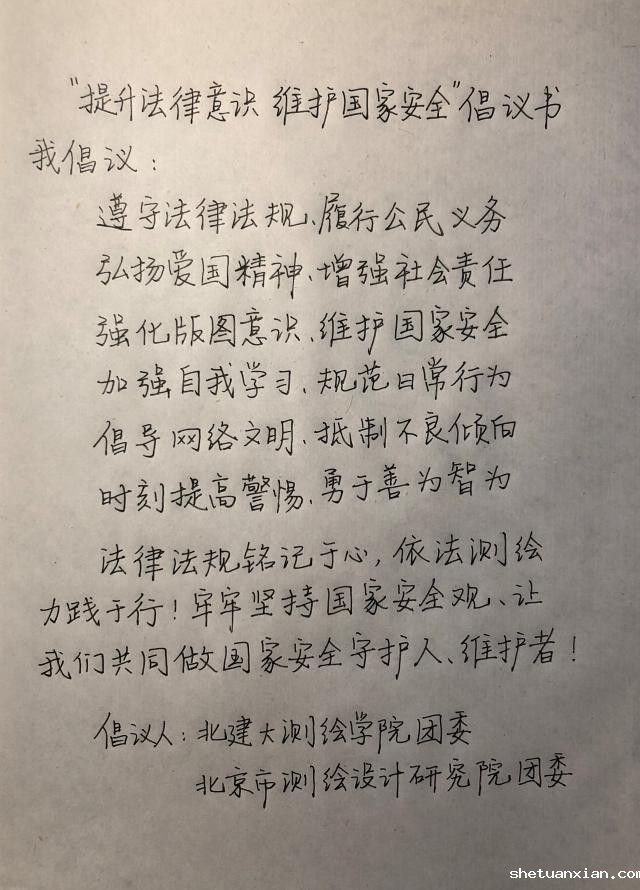 “提升法律意识 维护国家安全”倡议书
我倡议：
遵守法律法规、履行公民义务
弘扬爱国精神、增强社会责任
强化版图意识、维护国家安全
加强自我学习、规范日常行为
倡导网络文明、抵制不良倾向
时刻提高警惕、勇于善为智为
法律法规铭记于心，依法测绘
力践于行！牢牢坚持国家安全观、让
我们共同做国家安全守护人、维护者！
倡议人：北建大测绘学院团委
北京市测绘设计研究院团委
shetuanxian.com